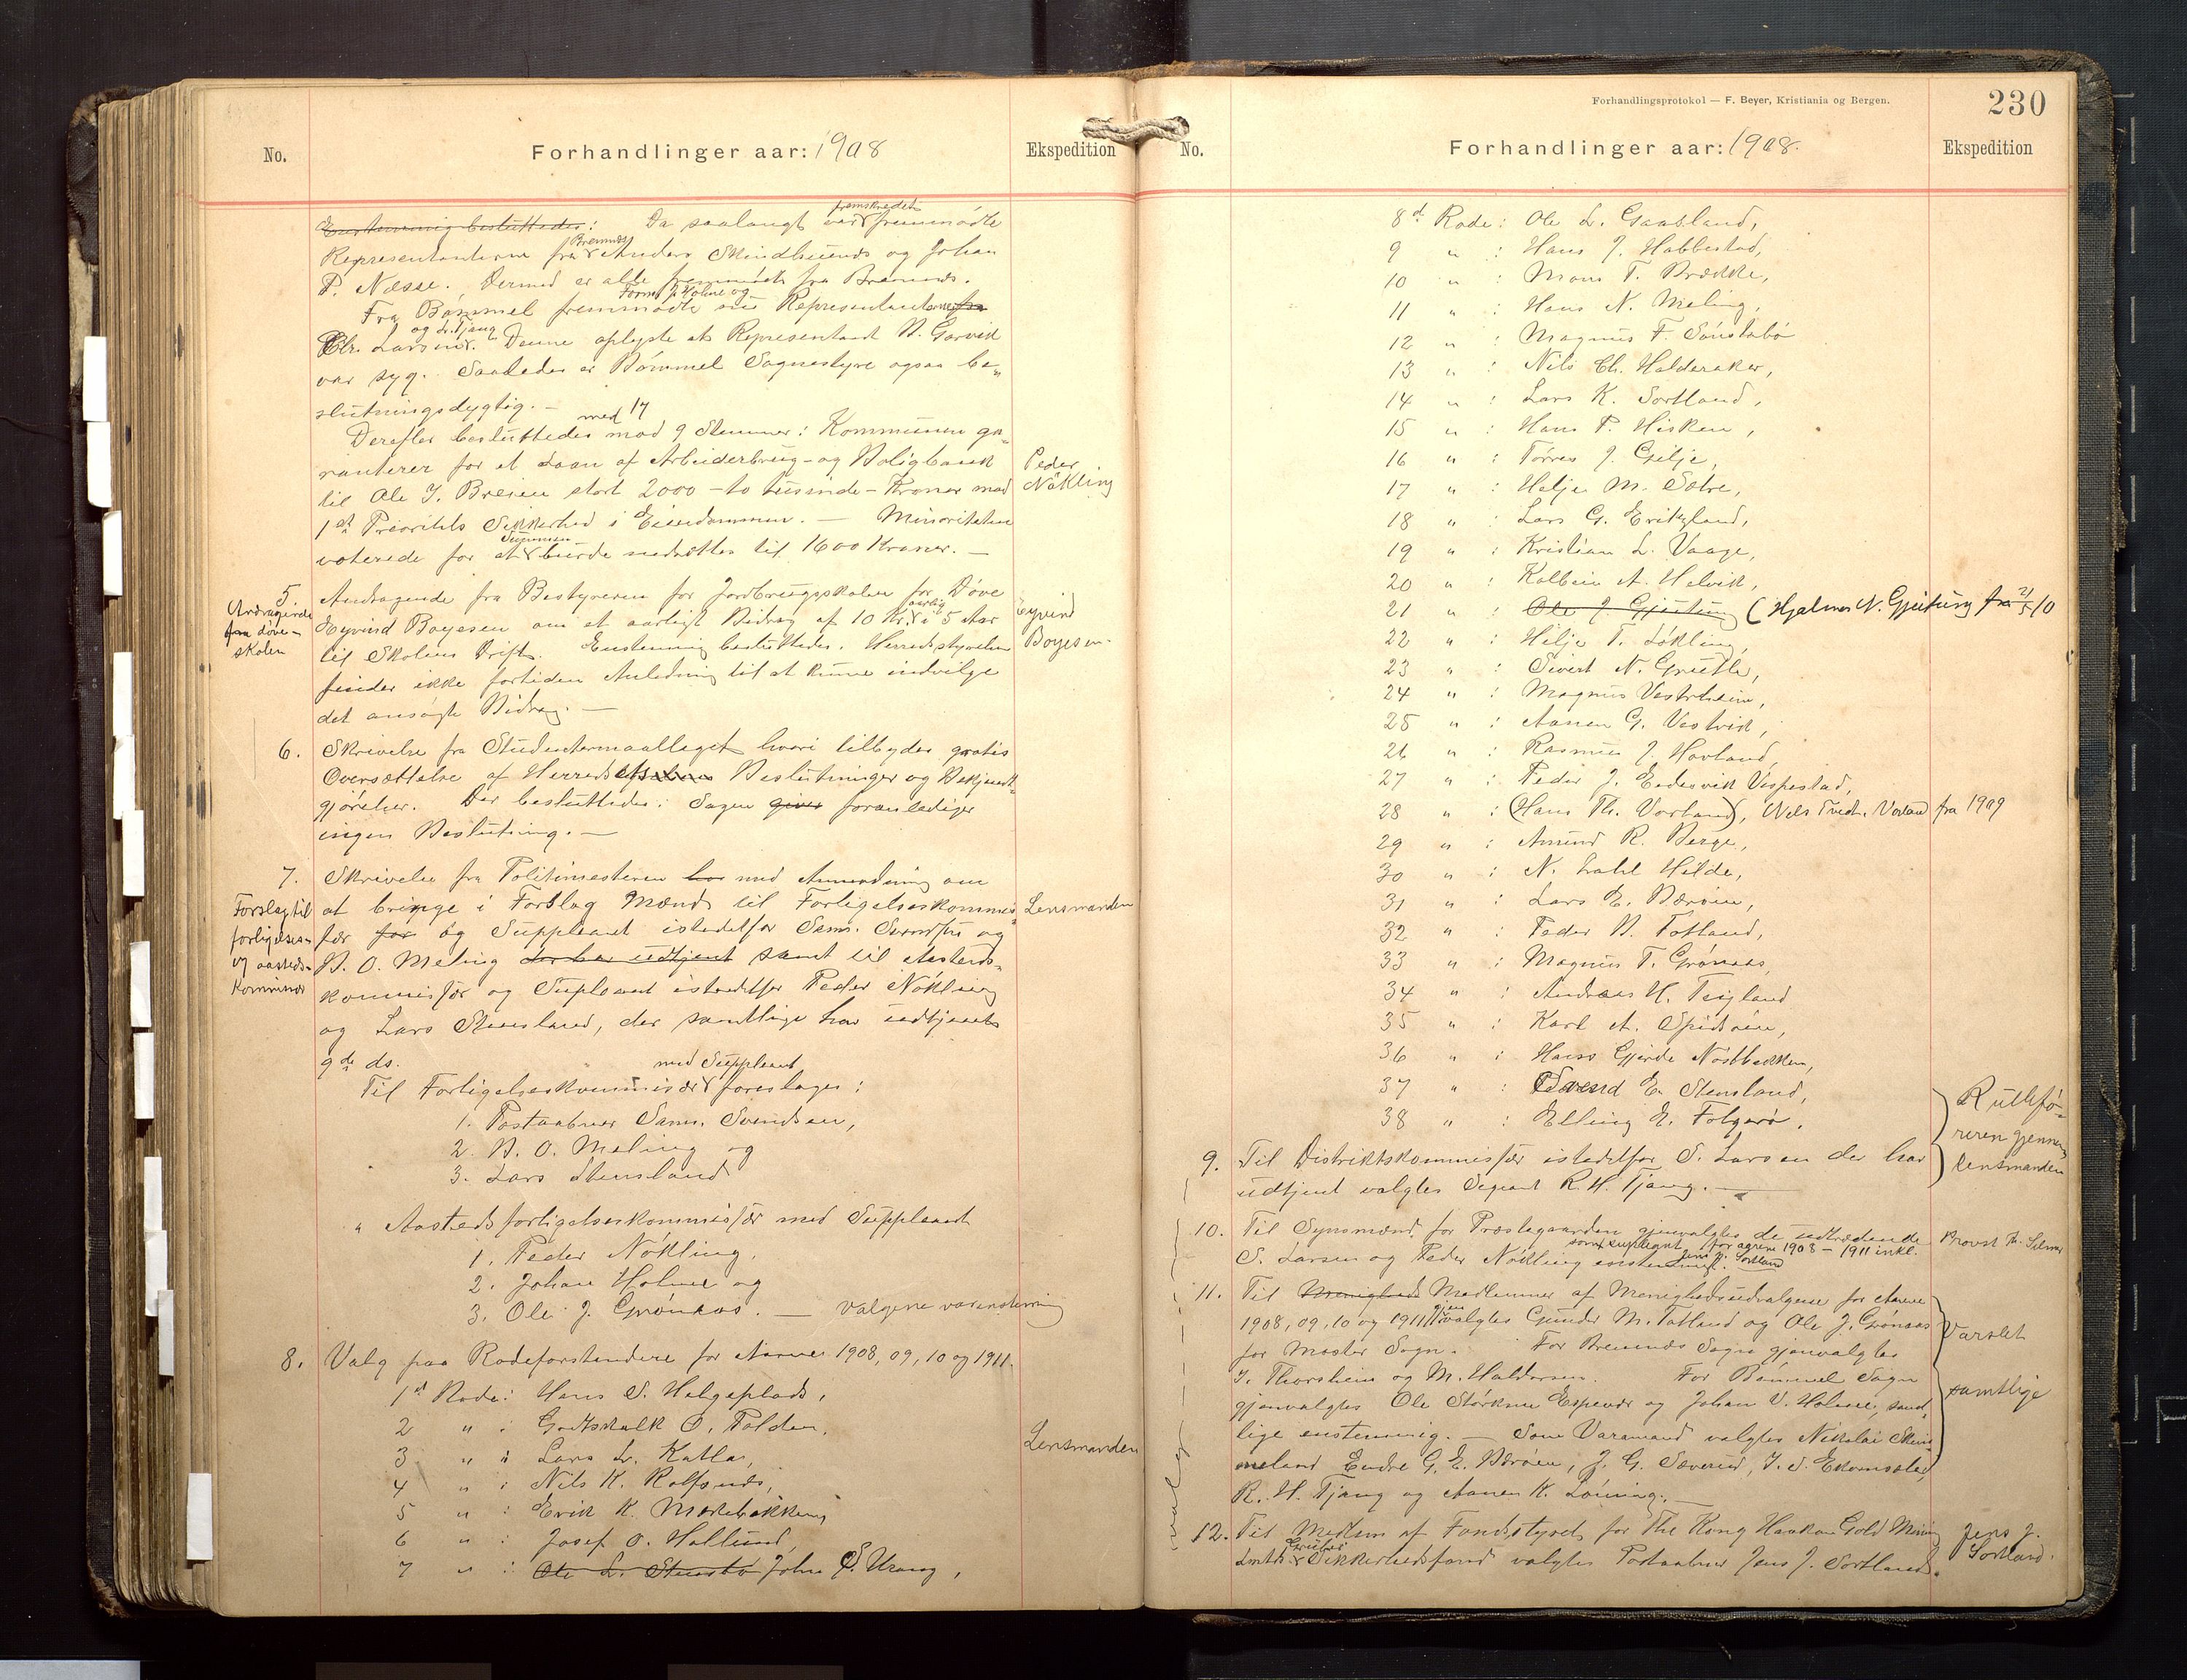 No.
Forhandlinger aar: 1908
Ekspedition
Enstemmig besluttedes: Da saalangt var fremskredet fremmødte
Representanterne fra Bremnes Anders Skimbuends og Johan
P. Næsse. Dermed er alle fremmødt fra Bremnes.
Fra Bømmel fremmødte nu Representanterne fra
Tørris J. Holme og
Chr. Larsen og L. Tjang. Denne oplyste at Representant N. Gorvik
var syg. Saaledes er Bømmel Sognestyre ogsaa be-
slutningsdygtig. –
Derefter besluttedes med 17 mod 9 Stemmer: Kommunen ga-
ranterer for et Laan af Arbeiderbrug- og Boligbank
til Ole J. Breien stort 2000 – to tusinde – Kroner mod
1ste Prioritets Sikkerhed i Eiendommen. – Minoriteten
voterede for at Summen burde nedsættes til 1600 Kroner. –
Peder
Nøkling
5.
Andragende
fra Døve-
skolen
Andragende fra Bestyreren for Jordbrugsskolen for Døve
Eyvind Boyesen om et aarligt Bidrag af 10 Kr. aarlig i 5 Aar
til Skolens Drift. Enstemmig besluttedes. Herredsstyrelsen
finder ikke fortiden Anledning til at kunne indvilge
det ansøgte Bidrag. –
Eyvind
Boyesen
6. Skrivelse fra Studentermaallaget hvori tilbydes gratis
Oversættelse af Herreds Beslutninger og Bekjendt-
gjørelser. Der besluttedes: Sagen giver foranlediger
ingen Beslutning. –
7.
Forslag til
forligelses-
og aasteds-
kommissær
Skrivelse fra Politimesteren har med Anmodning om
at bringe i Forslag Mænd til Forligelseskommis-
sær for og Suppleant istedetfor Sams. Svendsen og
N. O. Meling der har udtjent samt til Aasteds-
kommissær og Supleant istedetfor Peder Nøkling
og Lars Stensland, der samtlige har udtjent
9de ds.
Til Forligelseskommissær med Suppleant foreslages:
1. Postaabner Sams. Svendsen,
2. N. O. Meling og
3. Lars Stensland
" Aastedsforligelseskommissær med Suppleant
1. Peder Nøkling,
2. Johan Holme og
3. Ole J. Grønaas. – Valgene var enstemmig
Lensmanden
8. Valg paa Rodeforstandere for Aarene 1908, 09, 10 og 1911.
1ste Rode: Hans S. Helgeplads,
2 " : Godtskalk O. Folden,
3 " : Lars L. Katla,
4 " : Nils K. Rolfsnes,
5 " : Erik K. Mækebakken,
6 " : Josef O. Hollund,
7 " : Ole L. Stensbø John E. Urang,
Lensmanden
Forhandlingsprotokol — F. Beyer, Kristiania og Bergen.
230
No.
Forhandlinger aar: 1908.
Ekspedition
8de Rode: Ole L. Gaasland,
9 " : Hans J. Habbestad,
10 " : Mons T. Brække,
11 " : Hans N. Meling,
12 " : Magnus F. Sønstabø
13 " : Nils Ch. Halderaker,
14 " : Lars K. Sortland,
15 " : Hans P. Hisken,
16 " : Tørres J. Gilje,
17 " : Helje M. Solre,
18 " : Lars G. Eriksland,
19 " : Kristian L. Vaage,
20 " : Kolbein A. Helvik,
21 " : Ole J. Gjøitung (Hjalmar N. Gjøitung fra 21/5 10
22 " : Hilje T. Løkling,
23 " : Sivert N. Grutle,
24 " : Magnus Vestrheim,
25 " : Aanen G. Vestvik,
26 " : Rasmus J. Hovland,
27 " : Peder J. Eidesvik Vespestad,
28 " : (Hans Th. Vorland), Nels Tvedt. Vorland fra 1909
29 " : Amund R. Berge,
30 " : N. Dahl Hilde,
31 " : Lars E. Børøen,
32 " : Peder N. Totland,
33 " : Magnus T. Grønaas,
34 " : Andreas H. Teigland
35 " : Karl A. Spidsøen,
36 " : Hans Gjerde Nøstbakken,
37 " : Svend E. Stensland,
38 " : Elling E. Folgerø.
9. Til Distriktskommissær istedetfor S. Larsen der har
udtjent valgtes Sergeant R. H. Tjang. –
Rullefø-
reren gjennem
Lensmanden
valg
10. Til Synsmænd for Præstegaarden gjenvalgtes de udtrædende
S. Larsen og Peder Nøkling enstemmig. som supleant for aarene 1908 – 1911 inkl.
Jens J. Sortland
Provst
11. Til Menigheds Medlemmer af Menighedsudvalgene for Aarene
1908, 09, 10 og 1911 gjenvalgtes Gunder M. Totland og Ole J. Grønaas
for Moster Sogn. For Bremnes Sogn gjenvalgtes
T. Thorsheim og M. Haldorsen. For Bømmel Sogn
gjenvalgtes Ole Størksen Espevær og Johan V. Holme, samt-
lige enstemmig. – Som Varamænd valgtes Nikolai Skim-
meland Endre G. E. Børøen, J. G. Sæverud, J. S. Ekornsæter,
R. H. Tjang og Aanen K. Lønning. –
Varslet
samtlige
12. Til Medlem af Fondsstyret for The Kong Haakon Gold Mining
Lmtd. Gruber Sikkerhedsfond valgtes Postaabner Jens J. Sortland.
Jens J.
Sortland.